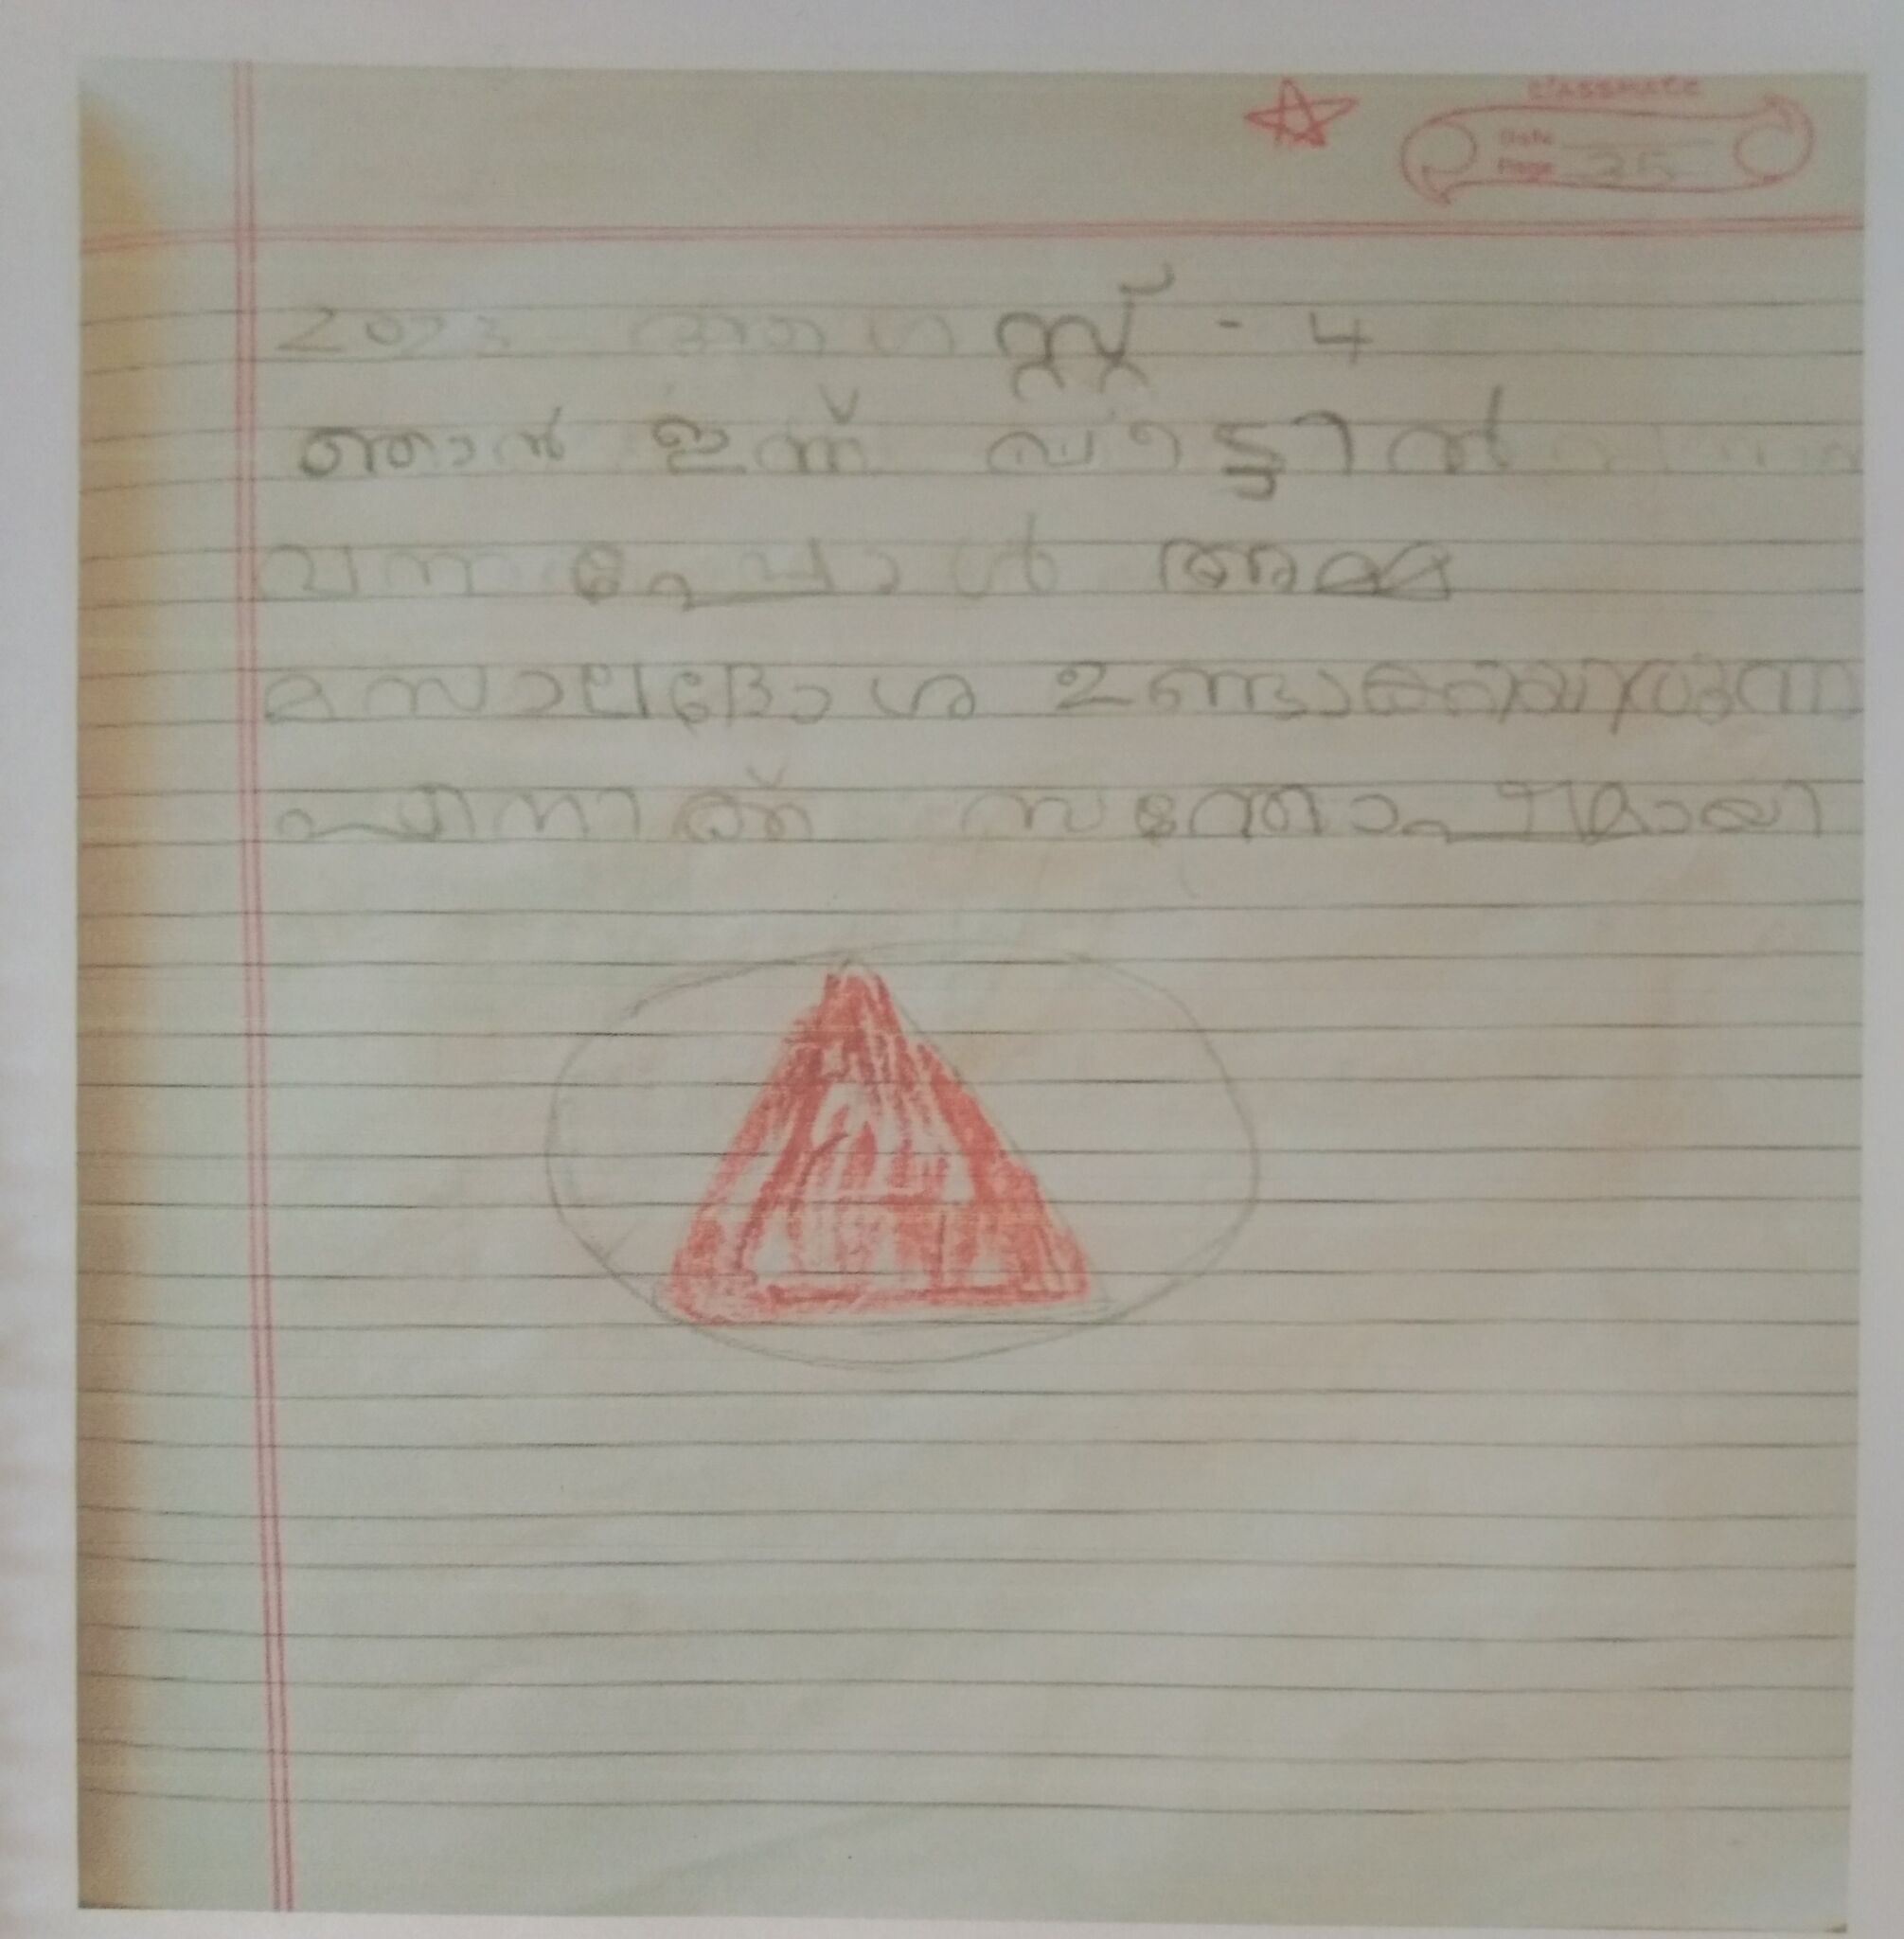 classmate
Date
Page 35
2023 ആഗസ്റ്റ് - 4
ഞാൻ ഇന്ന് വീട്ടിൽ
വന്നപ്പോൾ അമ്മ
മസാലദോശ
എനിക്ക് സന്തോഷമായി